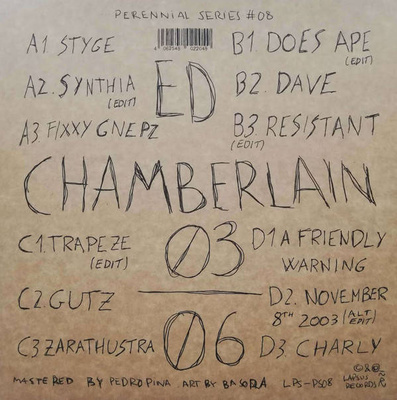 PERENNIAL SERIES #08
A1 STYGE
A2. SYNTHIA
(EDIT)
A3. FIXXY GNEPZ
ED
B1. DOES APE
(EDIT)
B2. DAVE
B3. RESISTANT
(EDIT)
CHAMBERLAIN
C1. TRAPEZE
(EDIT)
C2. GUTZ
C3 ZARATHUSTRA
03
06
D1 A. FRIENDLY
WARNING
D2. NOVEMBER
8TH 2003 (ALT EDIT)
D3. CHARLY
MASTERED BY PEDRO PINA ART BY BASORA LPS-PS08
LAPSUS
RECORDS